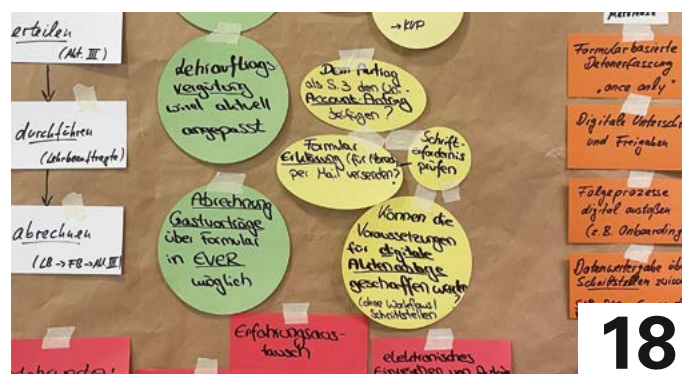 erteilen
(Abt. III)
durchführen
(Lehrbeauftragte)
abrechnen
(LB → FB → Abt. III)
Lehrauftrags
vergütung
wird aktuell
angepasst
Abrechnung
Gastvorträge
über Formular
in EVER
möglich
→ KVP
Dem Antrag
als S. 3 den
Account-Antrag
beifügen?
Formular
Erklärung (für
per Mail versenden?
Schrift-
erfordernis
prüfen
Können die
Voraussetzungen
für digitale
Aktenablage
geschaffen werden
(ohne Workflows /
Schnittstellen
?
Erfahrungsaus-
tausch
elektronisches
Einreichen von
Formularbasierte
Datenerfassung
"once only"
Digitale Untersch
und Freigaben
Folgeprozesse
digital anstoßen
(z.B. Onboarding
Datenweitergabe üb
Schnittstellen zwisc
18